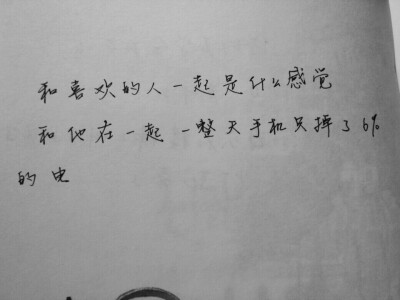 和喜欢的人一起是什么感觉
和他在一起一整天手机只掉了6%
的电